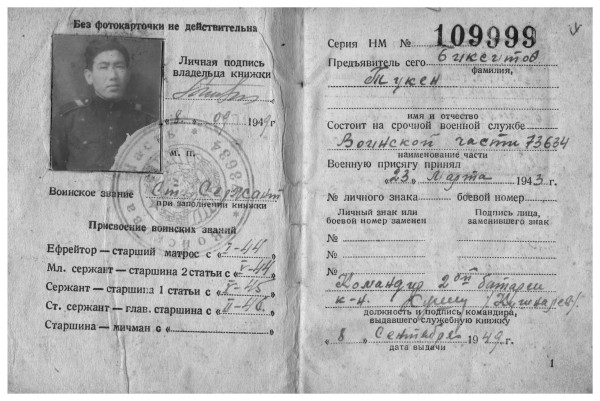 Без фотокарточки не действительна
Личная подпись
владельца книжки
"8" 09 1949 г.
М. П.
Воинское звание Ст. Сержант
при заполнении книжки
Присвоение воинских званий
Ефрейтор — старший матрос с „V-44
Мл. сержант — старшина 2 статьи с „V-44
Сержант — старшина 1 статьи с „V-45
Ст. сержант — глав. старшина с „II-46.
Старшина — мичман с „ "
Серия НМ № 109999
Предъявитель сего
фамилия,
Тукен
имя и отчество
Состоит на срочной военной службе
Воинской части 73634
наименование части
Военную присягу принял
„23" Марта 1943 г.
№ личного знака боевой номер
Личный знак или
боевой номер заменен
Подпись лица,
заменившего знак
№
№
№
Командир 2ой батареи
к-н.
должность и подпись командира,
выдавшего служебную книжку
„8" Сентября 1949 г.
дата выдачи
1